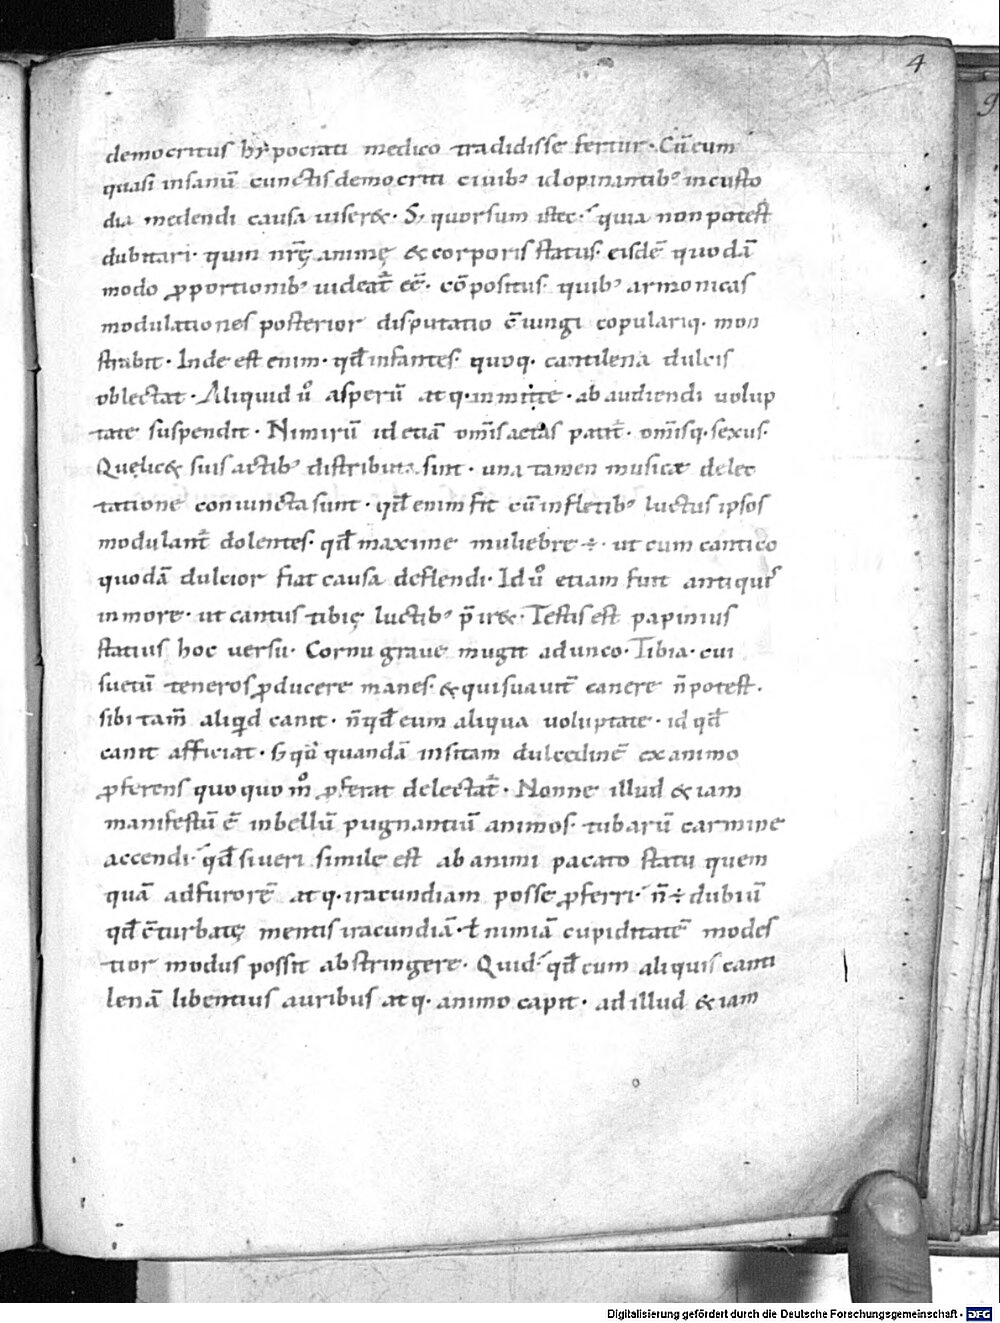 4
democritus hypocrati medico tradidisse fertur· Cū eum
quasi insanū cunctis democriti ciuibꝫ id opinantibꝫ in custo
dia medendi causa uiser&· S; quorsum istec· quia non potest
dubitari· quin nrę̄ animę & corporis status· eisdē quodā
modo ꝓportionibꝫ uideat̄ eē· cōpositus· quibꝫ armonicas
modulationes posterior disputatio c̄iungi copulariq· mon
strabit· Inde est enim· qđ infantes· quoq· cantilena dulcis
oblectat· Aliquid ů asperū atq· inmitte· ab audiendi uolup
tate suspendit· Nimirū id etiā om̄is aetas patit̄· om̄isq· sexus·
Quę lic& suis actibꝫ distributa sint· una tamen musicæ delec
tatione coniuncta sunt· qđ enim fit cū in fletibꝫ luctus ipsos
modulant̄ dolentes· qđ maxime muliebre ÷· ut cum cantico
quodā dulcior fiat causa deflendi· Id ů etiam fuit antiquis
in more· ut cantus tibię luctibꝫ p̄ir&· Testis est papinius
statius hoc uersu· Cornu graue mugit adunco· Tibia· cui
suetū teneros ꝓducere manes· & qui suauit̄ canere n̄ potest·
sibi tam̄ aliqid canit· n̄ qđ eum aliqua uoluptate· id qđ
canit afficiat· s; quandā insitam dulcedinē ex animo
ꝓferens quoquo m̊ ꝓferat delectat̄· Nonne illud & iam
manifestū ē in bellū pugnantiū animos· tubarū carmine
accendi· qđ si ueri simile est ab animi pacato statu quem
quā ad furorē atq· iracundiam posse ꝓferri· n̄ ÷ dubiū
qđ c̄turbatę mentis iracundiā· ƚ nimiā cupiditatē modes
tior modus possit abstringere· Quid· qđ cum aliquis canti
lenā libentius auribus atq· animo capit· ad illud & iam
Digitalisierung gefördert durch die Deutsche Forschungsgemeinschaft - DFG